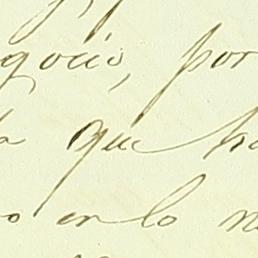 gocio, por
a que ha
o en lo n